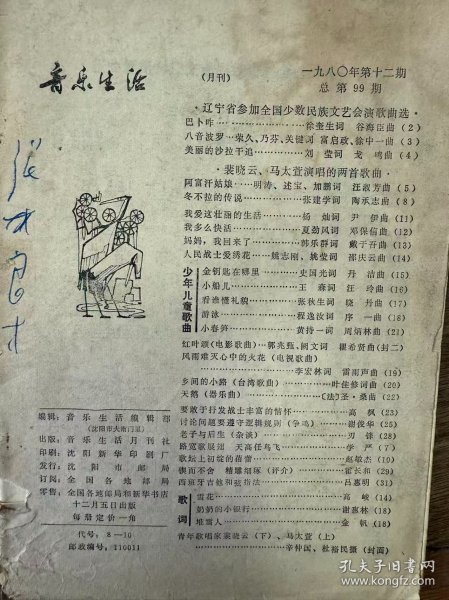 音乐生活
（月刊）
一九八〇年第十二期
总第99期
·辽宁省参加全国少数民族文艺会演歌曲选·
巴卜咋……徐奎生词 谷海臣曲（2）
八音波罗…柴久、乃芬、关键词 富启政、徐中一曲（3）
美丽的沙拉干追……刘莹词 戈鸣曲（4）
·裴晓云、马太萱演唱的两首歌曲·
阿富汗姑娘……明涛、述宝、加鹏词 汪淑芳曲（5）
冬不拉的传说……张建学词 陶承志曲（8）
我爱这壮丽的生活……杨灿词 尹伊曲（11）
我多么快活……夏劲风词 邓保信曲（12）
妈妈，我回来了……韩乐群词 戴于吾曲（13）
人民战士爱绣花……姚志刚、姚莹词 邵庆云曲（14）
少年儿童歌曲
金钥匙在哪里……史国光词 丹洁曲（15）
小船儿……王森词 汪玲曲（16）
看谁懂礼貌……张秋生词 晓丹曲（17）
游泳……程逸汝词 序一曲（18）
小春笋……黄持一词 周炳林曲（21）
红叶颂（电影歌曲）…郭兆甄、阙文词 瞿希贤曲（封二）
风雨难灭心中的火花（电视歌曲）
李宏林词 雷雨声曲（19）
乡间的小路（台湾歌曲）……叶佳修词曲（20）
天鹅（器乐曲）……〔法〕圣·桑曲（22）
要敢于抒发战士丰富的情怀……高枫（3）
讨论问题要遵守逻辑规则（争鸣）…谢俊华（5）
老子与后生（杂谈）……刃锋（28）
路宽歌展翅 天高任鸟飞……学严（7）
歌坛上初绽的蓓蕾……赵敏杰（10）
锲而不舍 精雕细琢（评介）……霍长和（29）
西班牙吉他和弦指法……吕惠明（31）
歌词
雪花……高峻（14）
奶奶的小银行……谢惠林（18）
堆雪人……金帆（18）
青年歌唱家裴晓云（下）、马太萱（上）
……辛仲国、杜裕民摄（封面）
编辑：音乐生活编辑部
（沈阳市大南门里）
出版：音乐生活月刊社
印刷：沈阳新华印刷厂
发行：沈阳市邮局
订阅：全国各地邮局
零售：全国各地邮局和新华书店
十二月五日出版
每册定价一角
代号：8—10
邮政编号：110011
孔夫子旧书网